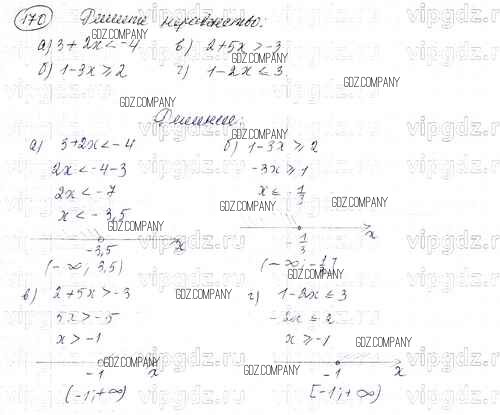 170 Решите неравенство:
а) 3+2x<-4 в) 2+5x>-3
б) 1-3x≥2 г) 1-2x≤3
Решение:
а) 3+2x<-4
2x<-4-3
2x<-7
x<-3,5
-3,5 x
(-∞; 3,5)
б) 1-3x≥2
-3x≥1
x≤-1/3
-1/3 x
(-∞; -1/3]
в) 2+5x>-3
5x>-5
x>-1
-1 x
(-1; +∞)
г) 1-2x≤3
-2x≤2
x≥-1
-1 x
[-1; +∞)
GDZ.COMPANY
vipgdz.ru